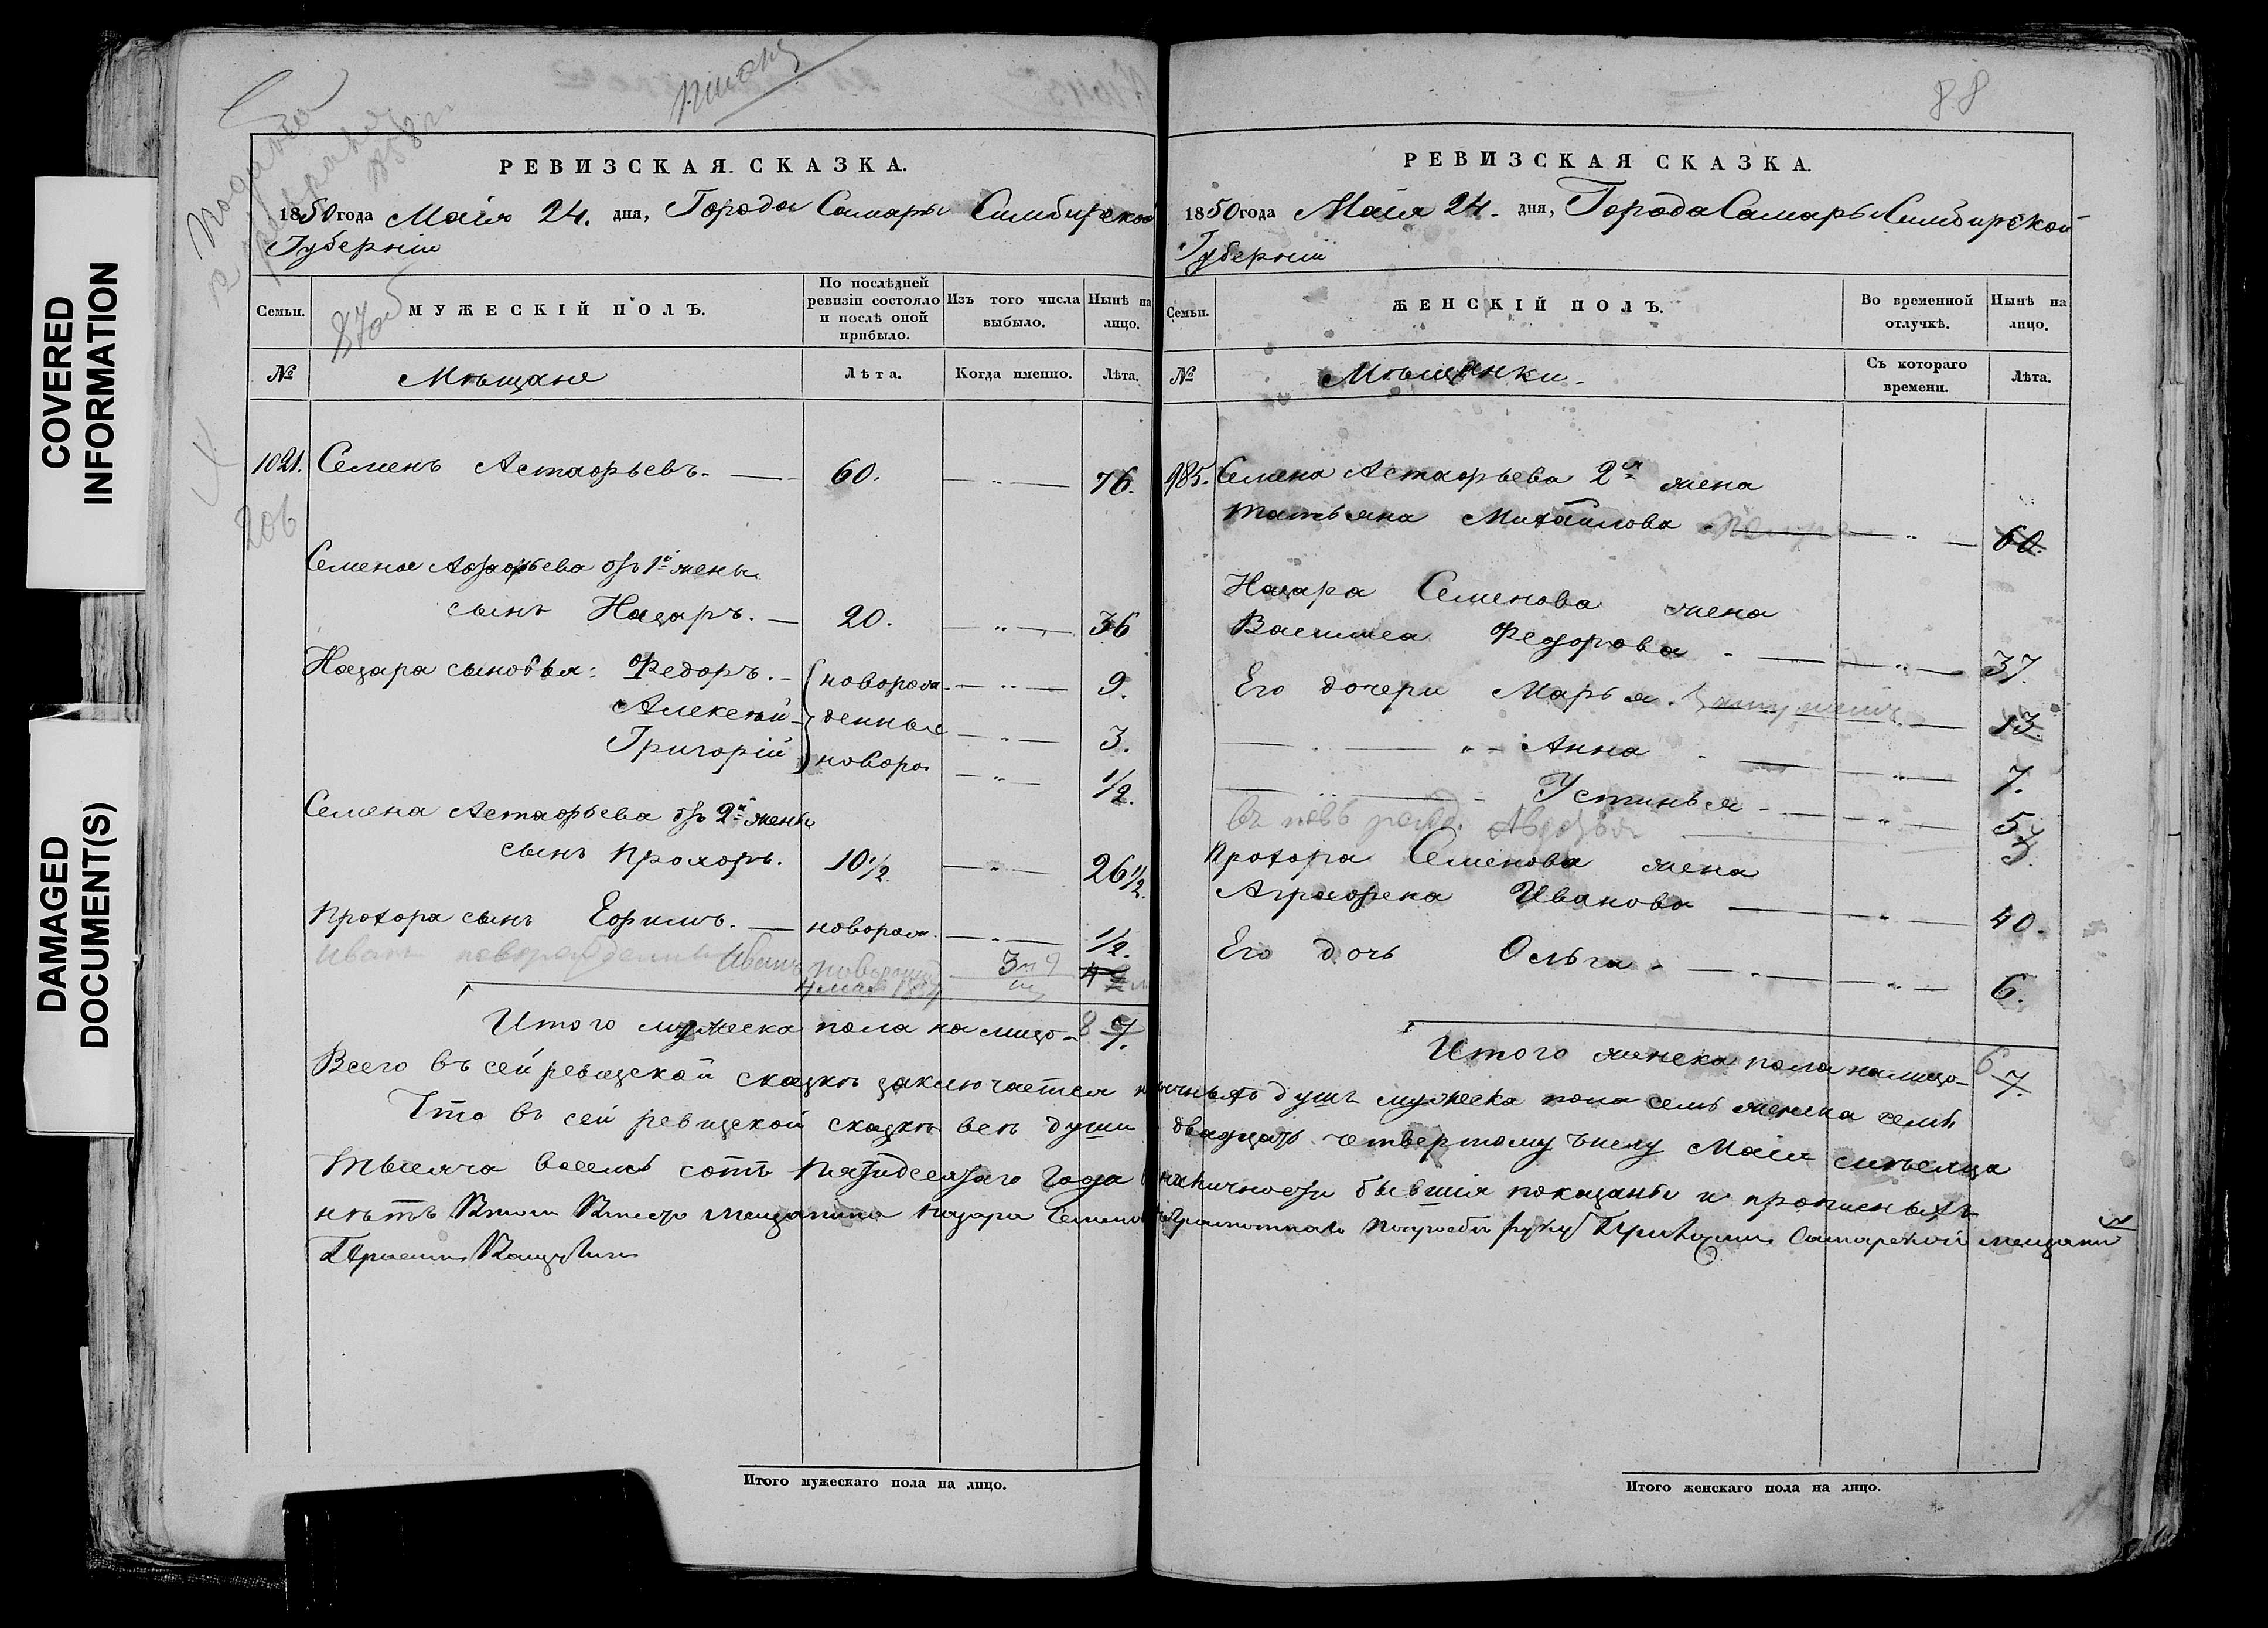 COVERED
INFORMATION
DAMAGED
DOCUMENT(S)
Подана
1858
РЕВИЗСКАЯ СКАЗКА.
1850 года Маія 24. дня, Города Самары Симбирской
Губерніи
Семьи.
МУЖЕСКІЙ ПОЛЪ.
По послѣдней
ревизіи состояло
и послѣ оной
прибыло.
Изъ того числа
выбыло.
Нынѣ на
лицо.
№
Мѣщане
Лѣта.
Когда именно.
Лѣта.
1021. Семенъ Астафьевъ. — 60. — „ — 76.
206
Семена Астафьева отъ 1й жены
сынъ Назаръ. — 20. — „ — 36
Назара сыновья: Федоръ. – новорож- — „ — 9.
Алексѣй – денные — „ — 3.
Григорій новорож — „ — 1/2.
Семена Астафьева отъ 2й жены
сынъ Прохоръ. 10 1/2 — „ — 26 1/2.
Прохора сынъ Ефимъ. — новорож. — „ — 1/2.
Иванъ новорожденный Иванъ
Итого мужеска пола на лицо – 8 7.
88
РЕВИЗСКАЯ СКАЗКА.
1850 года Маія 24. дня, Города Самары Симбирской
Губерніи
Семьи.
ЖЕНСКІЙ ПОЛЪ.
Во временной
отлучкѣ.
Нынѣ на
лицо.
№
Мѣщанки.
Съ котораго
времени.
Лѣта.
985. Семена Астафьева 2я жена
Татьяна Михайлова — „ — 60.
Назара Семенова жена
Василиса Федорова — „ — 37.
Его дочери Марья. — 13.
— „ – Анна — „ — 7.
— „ — Устинья – — „ — 5
Авдотья 3.
Прохора Семенова жена
Аграфена Иванова — „ — 40.
Его дочь Ольга – — „ — 6.
Итого женска пола на лицо – 6 7.
Всего въ сей ревизской сказкѣ заключается наличныхъ душъ мужеска пола семь женска семь
Что въ сей ревизской сказкѣ всѣ души двадцать четвертому числу Маія мѣсяца
тысяча восемь сотъ пятидесятаго года въ наличности бывшія показаны и прописныхъ
нѣтъ въ томъ вмѣсто мещанина Назара Семенова неграмотнаго по просьбѣ руку приложилъ Самарской мещанинъ
Итого мужескаго пола на лицо.
Итого женскаго пола на лицо.